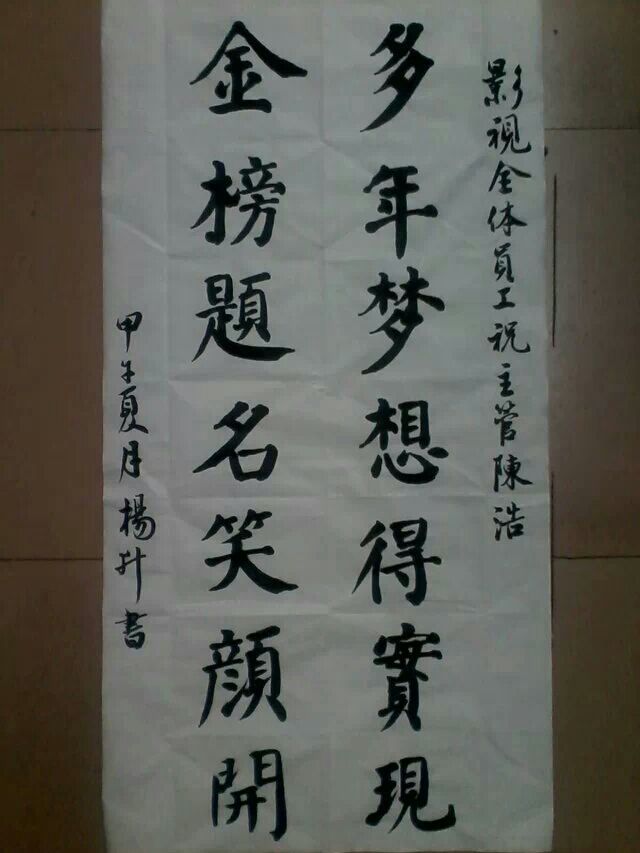 影視全体員工祝主管陳浩
多年梦想得實現
金榜題名笑顔開
甲午夏月楊升書